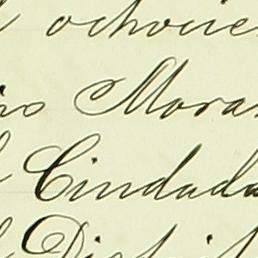 ochocien
Mora
Ciudada
Distrit